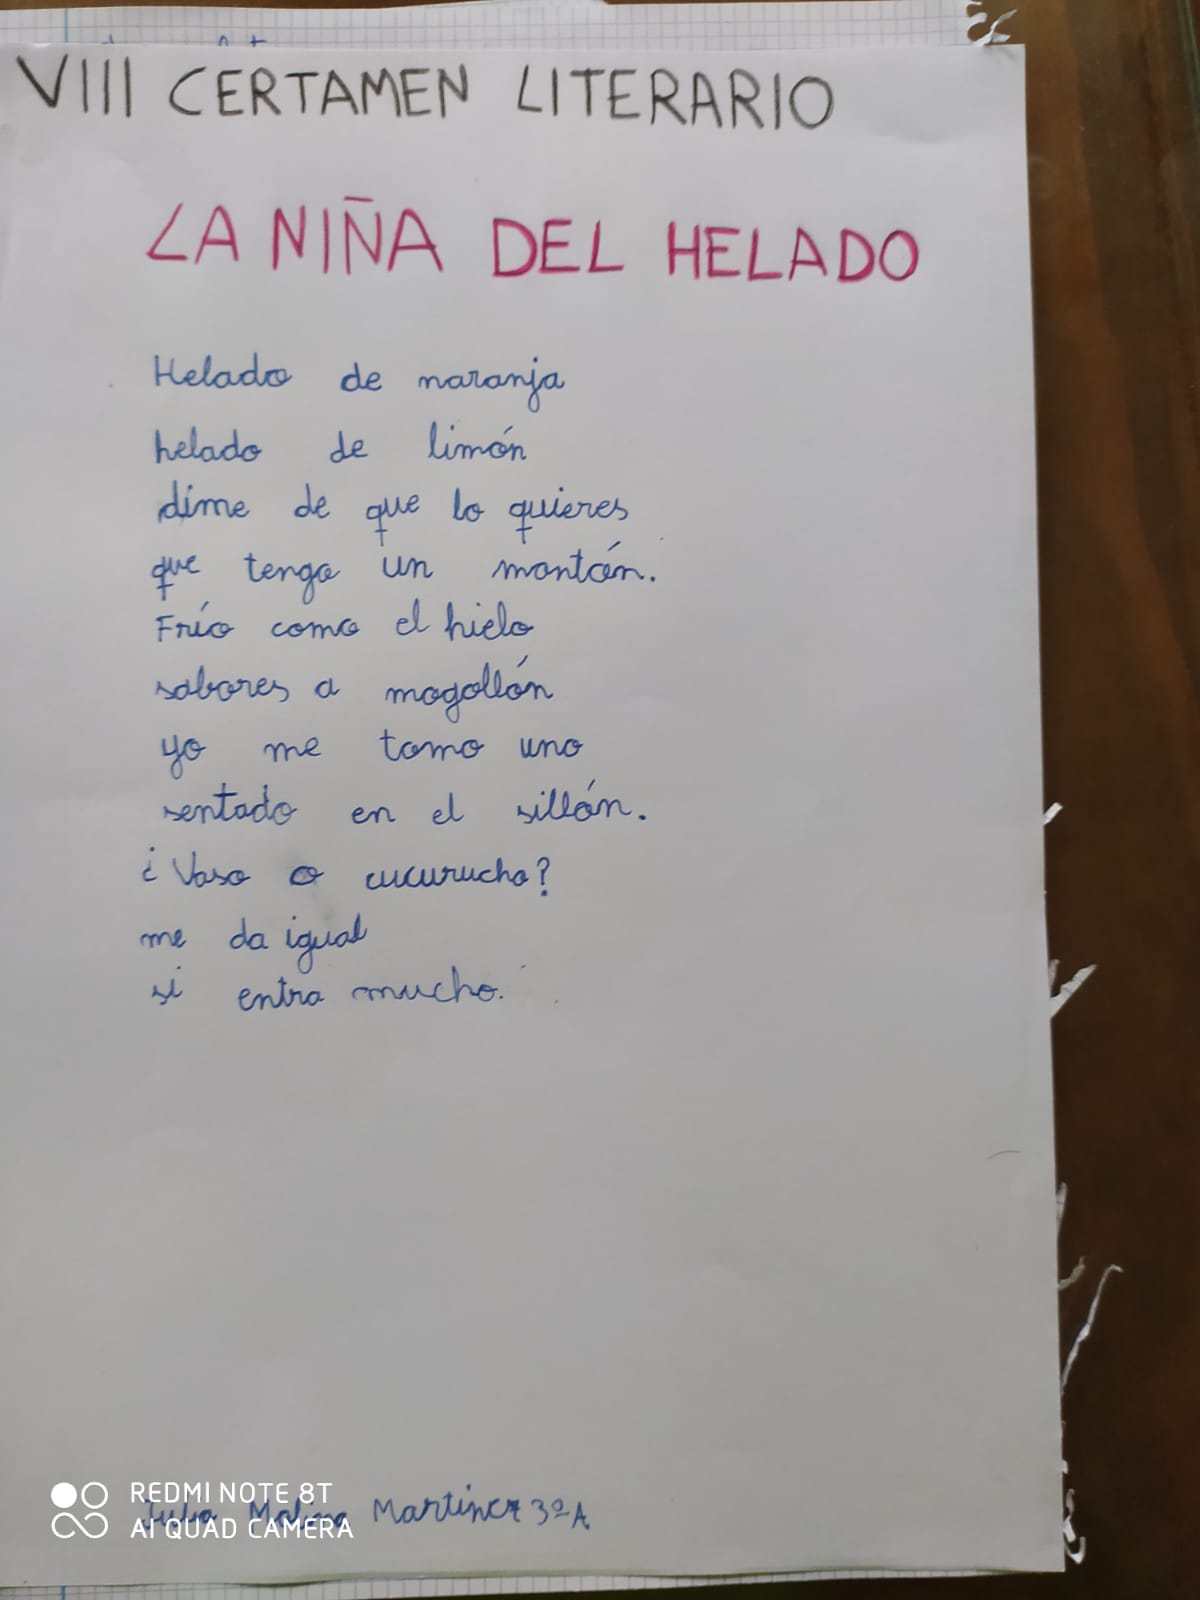 VIII CERTAMEN LITERARIO
LA NIÑA DEL HELADO
Helado de naranja
helado de limón
dime de que lo quieres
que tengo un montón.
Frío como el hielo
sabores a mogollón
yo me tomo uno
sentado en el sillón.
¿Vaso o cucurucho?
me da igual
si entra mucho.
Julia Molina Martínez 3ºA
REDMI NOTE 8T
AI QUAD CAMERA